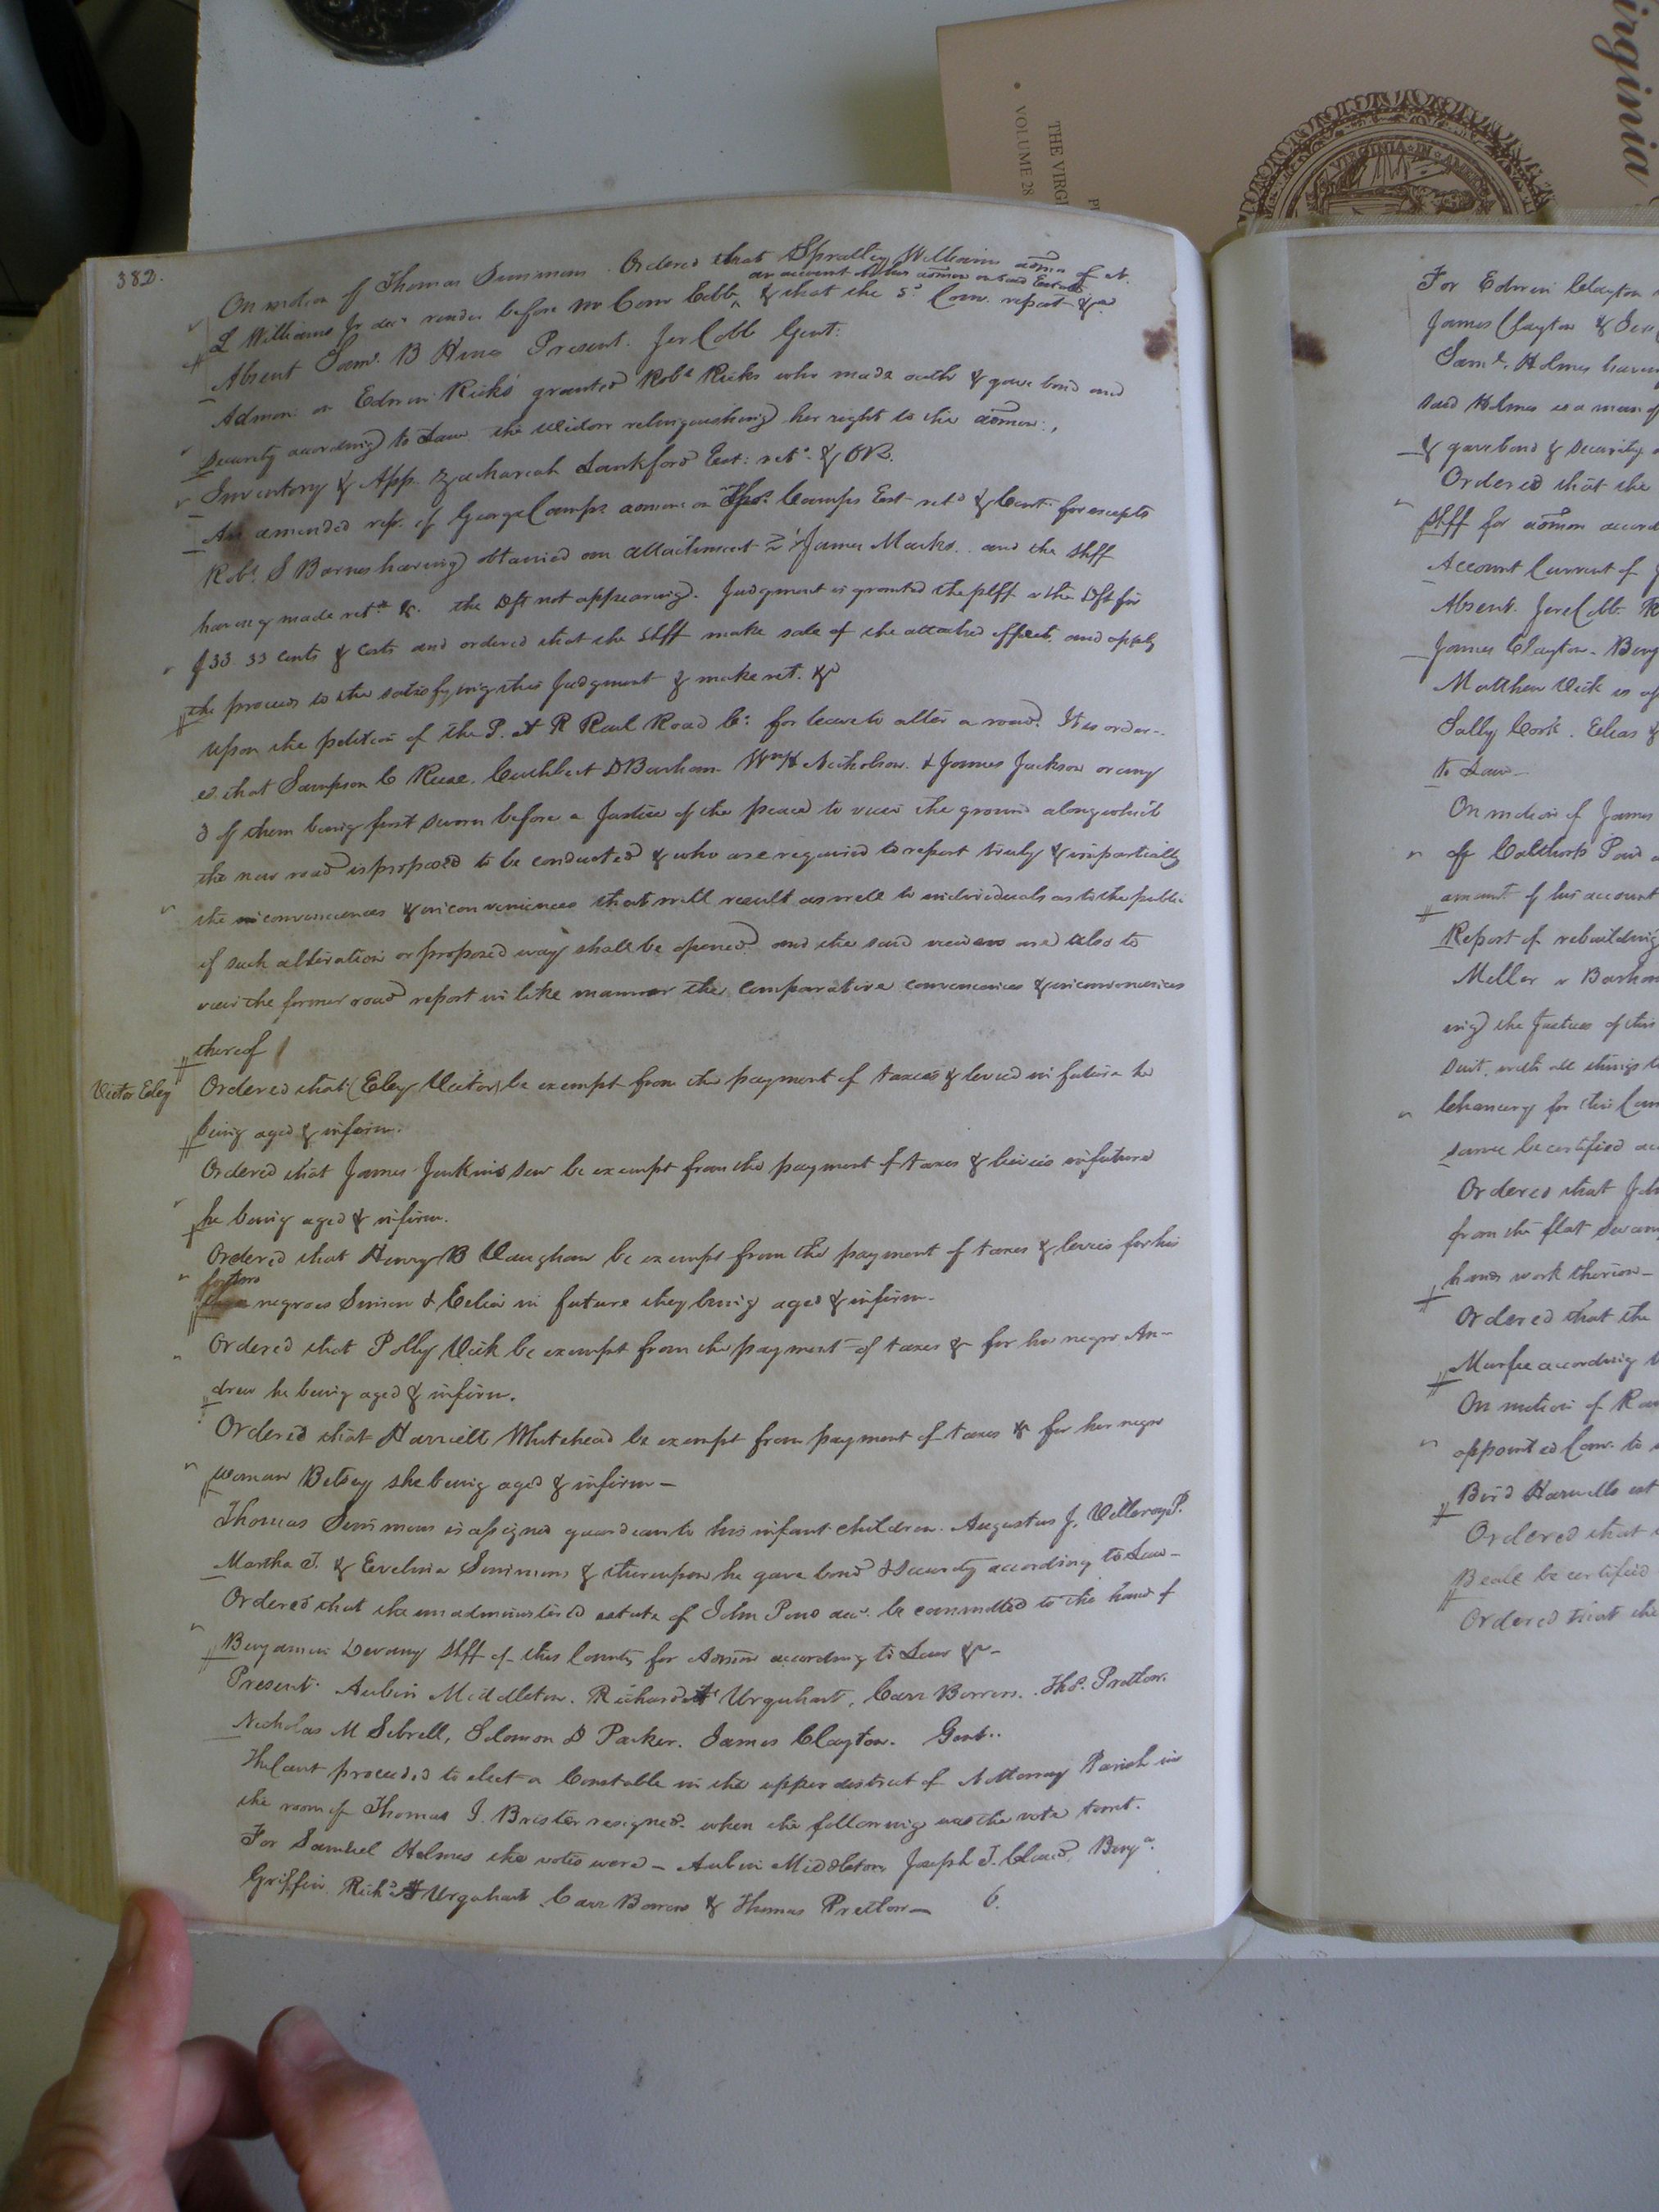 irginia
THE VIRG
VOLUME 28
VIRGINIA IN
382.
On motion of Thomas Simmons. Ordered that Spratley Williams admr. of N.
an account of his admon on said Estate
L Williams Jr decd. render before mr Comr Cobb & that the sd. Com. report &c.
Absent Saml. B Hines Present. Jer Cobb Gent:
Admon: on Edwin Ricks' granted Robt. Ricks who made oath & gave bond and
security according to Law the widow relinquishing her right to the admon:,
Inventory & App. Zachariah Lankford Est: retd. & OR.
An amended rep. of George Camps admon on Thos. Camps Est retd & Cont. for excepts
Robt. S Barnes having obtained an attachment vs James Marks. and the Shff
having made retn. &. the Dft not appearing. Judgment is granted the plff v the Dft for
$33.33 cents & costs and ordered that the Shff make sale of the attached effects and apply
the proceeds to the satisfying this Judgment & make ret. &c
Upon the petition of the P. & R Rail Road Co: for leave to alter a road. It is order-
ed that Sampson C Reese, Cuthbert D Barham Wm H Nicholson & James Jackson or any
3 of them being first sworn before a Justice of the peace to view the ground along which
the new road is proposed to be conducted & who are required to report truly & impartially
the conveniences & inconveniences that will result as well to individuals as to the public
if such alteration or proposed way shall be opened and the said viewers are also to
view the former road report in like manner the comparative conveniences & inconveniences
thereof
Victor Eley
Ordered that (Eley Victor) be exempt from the payment of taxes & levies in future he
being aged & infirm.
Ordered that James Jenkins senr be exempt from the payment of taxes & levies in future
he being aged & infirm.
Ordered that Henry B Vaughan be exempt from the payment of taxes & levies for his
for two
negroes Simon & Celia in future they being aged & infirm.
Ordered that Polly Vick be exempt from the payment of taxes &c for her negro An-
drew he being aged & infirm.
Ordered that Harriett Whitehead be exempt from payment of taxes &c for her negro
woman Betsey she being aged & infirm—
Thomas Simmons is assigned guardian to his infant children. Augustus J, Villeroy P.
Martha J. & Evelina Simmons & thereupon he gave bond & security according to Law—
Ordered that the unadministered estate of John Pond decd. be committed to the hands of
Benjamin Devany Shff of this County for Admon according to Law &c—
Present. Aubin Middleton. Richard H Urquhart, Carr Bowers. Thos. Pretlow.
Nicholas M Sebrell, Solomon D Parker. James Clayton. Gent..
The Court proceeded to elect a Constable in the upper district of Nottoway Parish in
the room of Thomas J. Brister resigned. when the following was the vote towit.
For Samuel Holmes the votes were— Aubin Middleton, Joseph T. Claud, Benja.
Griffin Richd H Urquhart Carr Bowers & Thomas Pretlow— 6.
For Edwin Clayton
James Clayton &
Saml. Holmes having
said Holmes is a man of
& gave bond & security
Ordered that the
Shff for admon accord
Account Current of
Absent. Jer Cobb.
James Clayton. Benj
Matthew Vick is
Sally Cook. Elias &
to Law—
On motion of James
of Colthorp Pond
amount of his account
Report of rebuilding
Miller v Barham
ing the Justices of this
suit. with all things
Chancery for this Coun
same be certified
Ordered that Joh
from the flat Swamp
hands work thereon—
Ordered that the
Murfee according
On motion of
appointed Com. to
Bird Harwells est
Ordered that
Beale be certified
Ordered that the